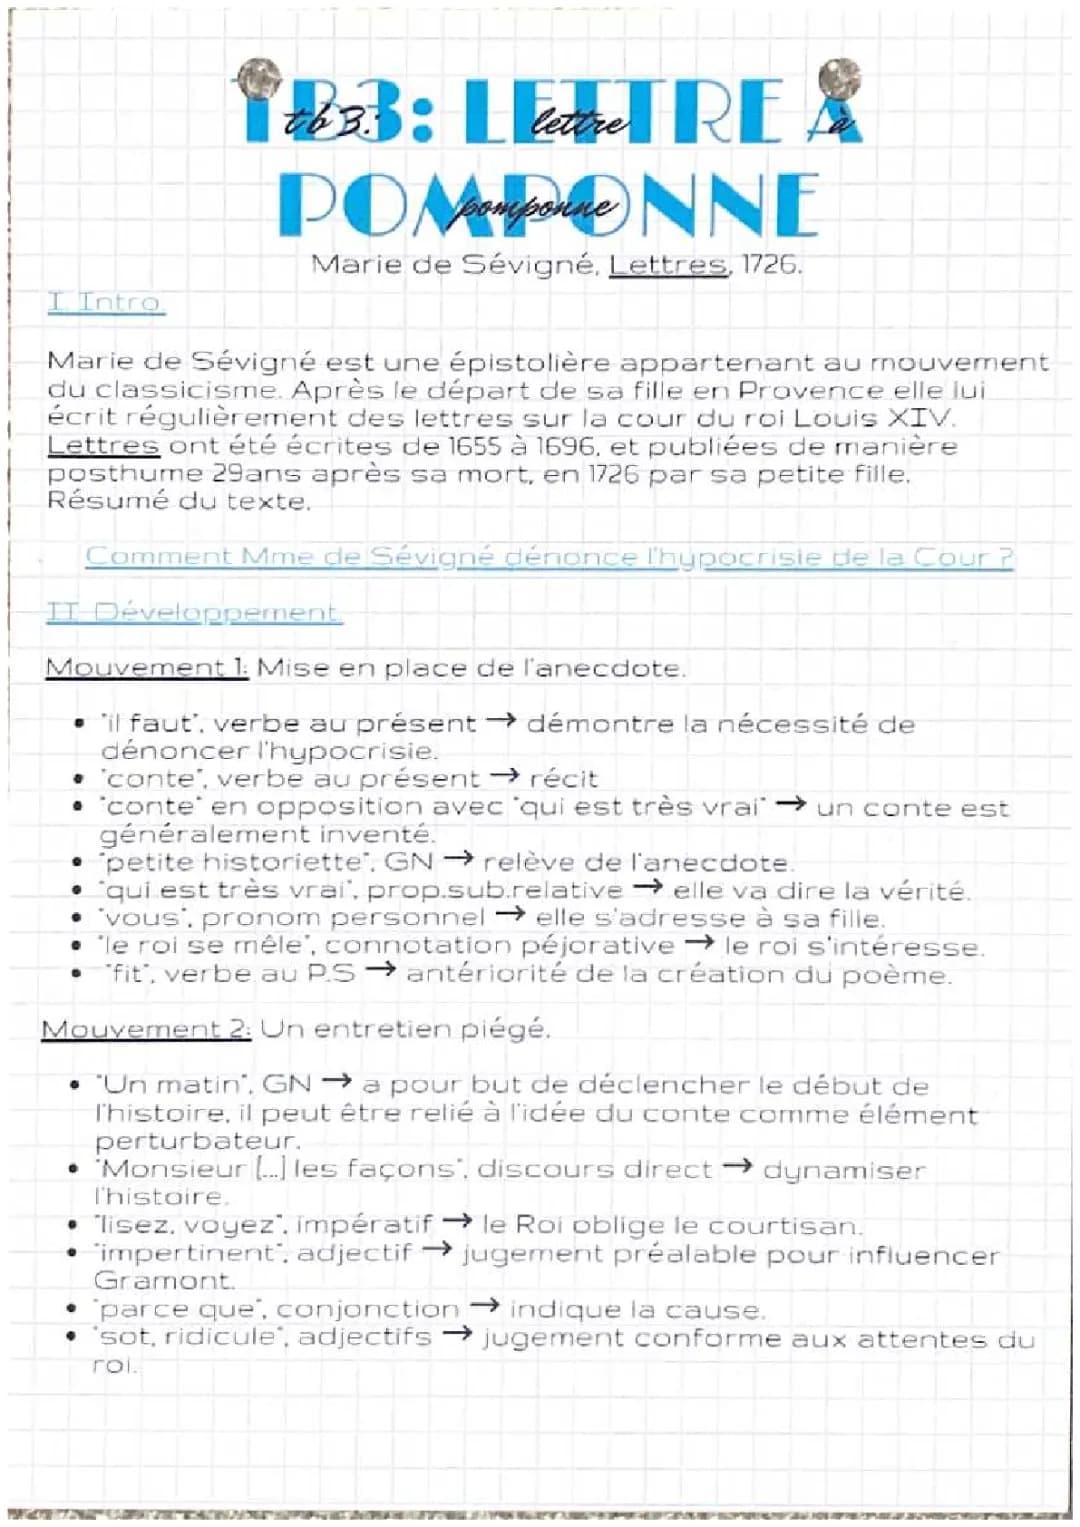 TB3: LETTRE À
tb 3: lettre à
POMPONNE
pomponne
Marie de Sévigné, Lettres, 1726.
I Intro
Marie de Sévigné est une épistolière appartenant au mouvement
du classicisme. Après le départ de sa fille en Provence elle lui
écrit régulièrement des lettres sur la cour du roi Louis XIV.
Lettres ont été écrites de 1655 à 1696, et publiées de manière
posthume 29ans après sa mort, en 1726 par sa petite fille.
Résumé du texte.
Comment Mme de Sévigné dénonce l'hypocrisie de la Cour ?
II Développement
Mouvement 1: Mise en place de l'anecdote.
• "il faut", verbe au présent → démontre la nécessité de
dénoncer l'hypocrisie.
• "conte", verbe au présent → récit
• "conte" en opposition avec "qui est très vrai" → un conte est
généralement inventé.
• "petite historiette", GN → relève de l'anecdote.
• "qui est très vrai", prop.sub.relative → elle va dire la vérité.
• "vous", pronom personnel → elle s'adresse à sa fille.
• "le roi se mêle", connotation péjorative → le roi s'intéresse.
• "fit", verbe au P.S → antériorité de la création du poème.
Mouvement 2: Un entretien piégé.
• "Un matin", GN → a pour but de déclencher le début de
l'histoire, il peut être relié à l'idée du conte comme élément
perturbateur.
• "Monsieur [...] les façons", discours direct → dynamiser
l'histoire.
• "lisez, voyez", impératif → le Roi oblige le courtisan.
• "impertinent", adjectif → jugement préalable pour influencer
Gramont.
• "parce que", conjonction → indique la cause.
• "sot, ridicule", adjectifs → jugement conforme aux attentes du
roi.